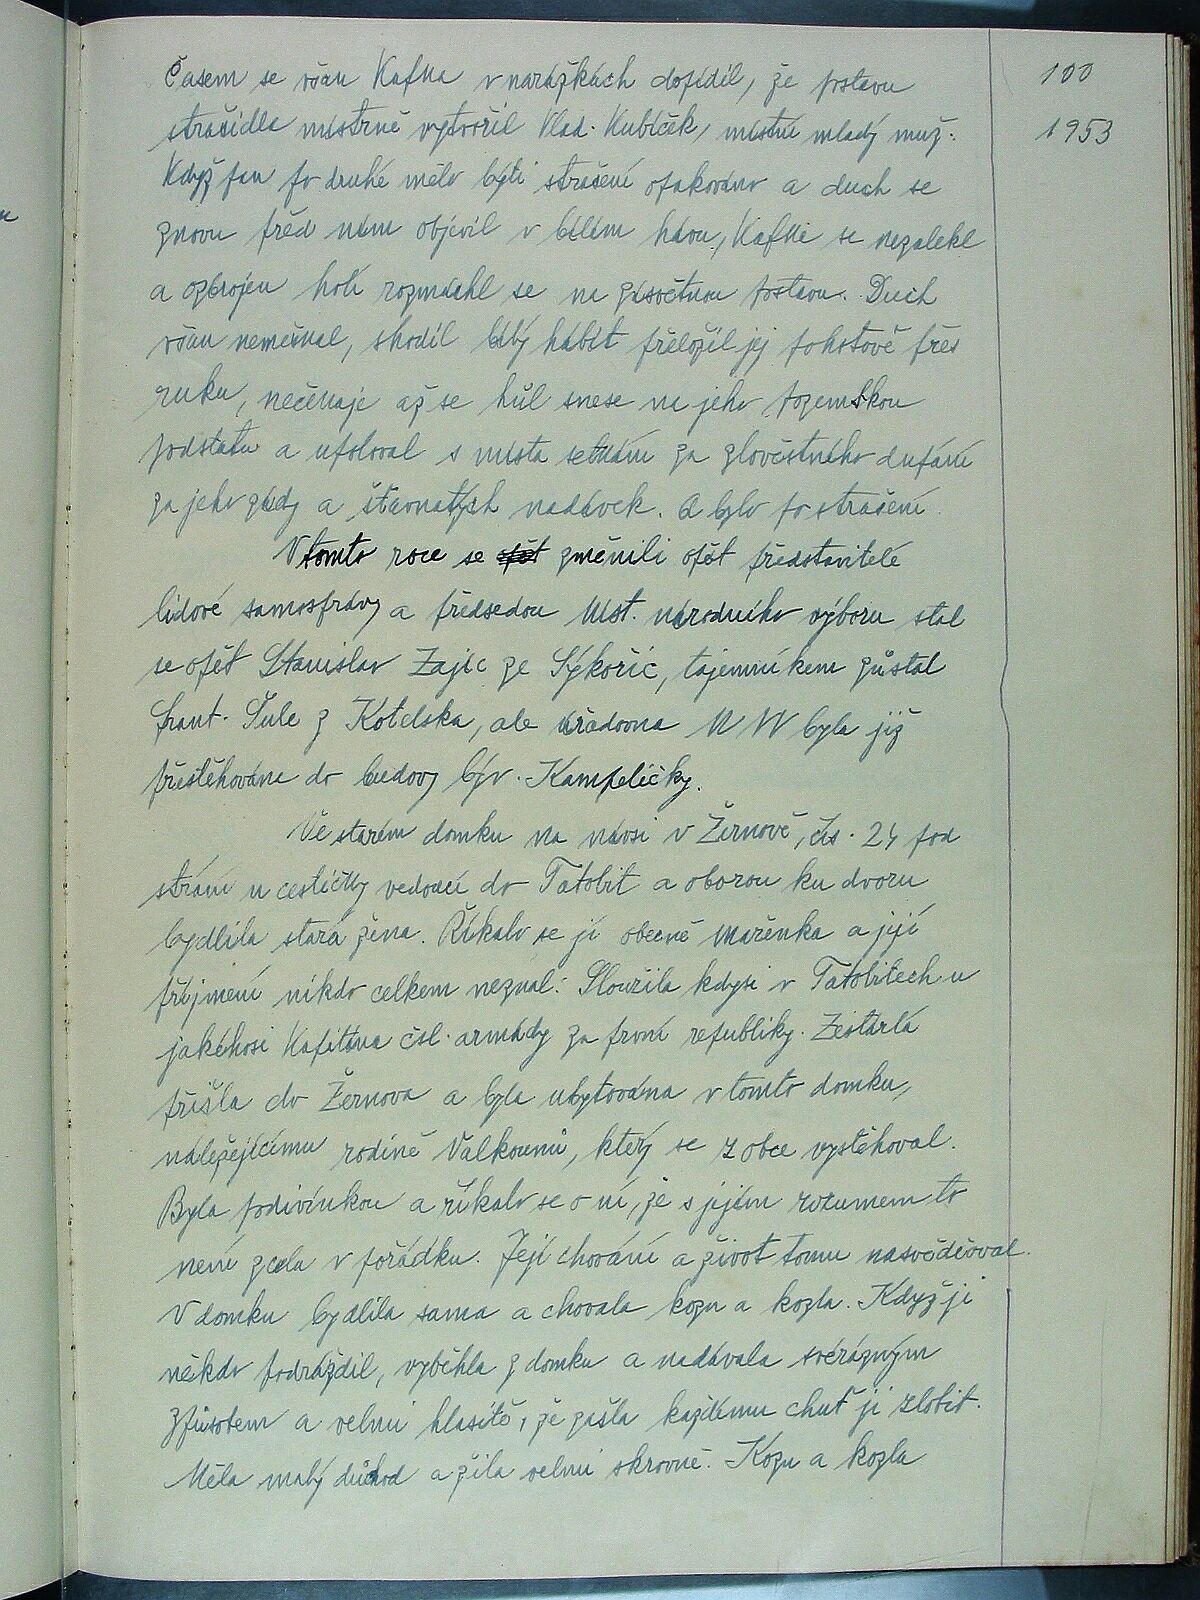 Časem se však Kafka v narážkách dopídil, že postavu
100
strašidla mistrně vytvořil Vlad. Kubíček, místní mladý muž.
1953
Když pan po druhé mělo býti strašení opakováno a duch se
znovu před ním objevil v bílém hávu, Kafka se nezalekl
a ozbrojen holí rozmáchl se na zásvětnou postavu. Duch
však nemeškal, shodil bílý hábit přeložil jej pohotově přes
ruku, nečekaje až se hůl snese na jeho pozemskou
podstatu a upaloval s místa setkání za zlověstného dupání
za jeho zády a šťavnatých nadávek. A bylo po strašení.
V tomto roce se opět změnili opět představitelé
lidové samosprávy a předsedou Míst. národního výboru stal
se opět Stanislav Zajíc ze Sýkořic, tajemníkem zůstal
Frant. Šule z Kotelska, ale úřadovna MNV byla již
přestěhována do budovy býv. Kampeličky.
Ve starém domku na návsi v Žernově, čís. 24 pod
strání u cestičky vedoucí do Tatobit a oborou ku dvoru
bydlila stará žena. Říkalo se jí obecně Mařenka a její
příjmení nikdo celkem neznal. Sloužila kdysi v Tatobitech u
jakéhosi kapitána čsl. armády za první republiky. Zestárlá
přišla do Žernova a byla ubytována v tomto domku,
náležejícímu rodině Valkounů, který se z obce vystěhoval.
Byla podivínkou a říkalo se o ní, že s jejím rozumem to
není zcela v pořádku. Její chování a život tomu nasvědčoval.
V domku bydlila sama a chovala kozu a kozla. Když ji
někdo podráždil, vyběhla z domku a nadávala svérázným
způsobem a velmi hlasitě, že zašla každému chuť ji zlobit.
Měla malý důchod a žila velmi skrovně. Kozu a kozla